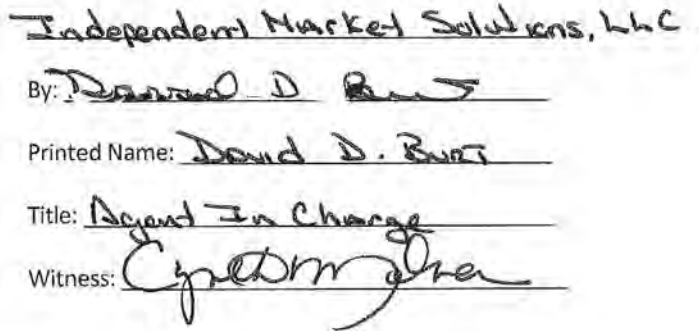 Independent Market Solutions, LLC
By: David D Burt
Printed Name: David D. Burt
Title: Agent In Charge
Witness: